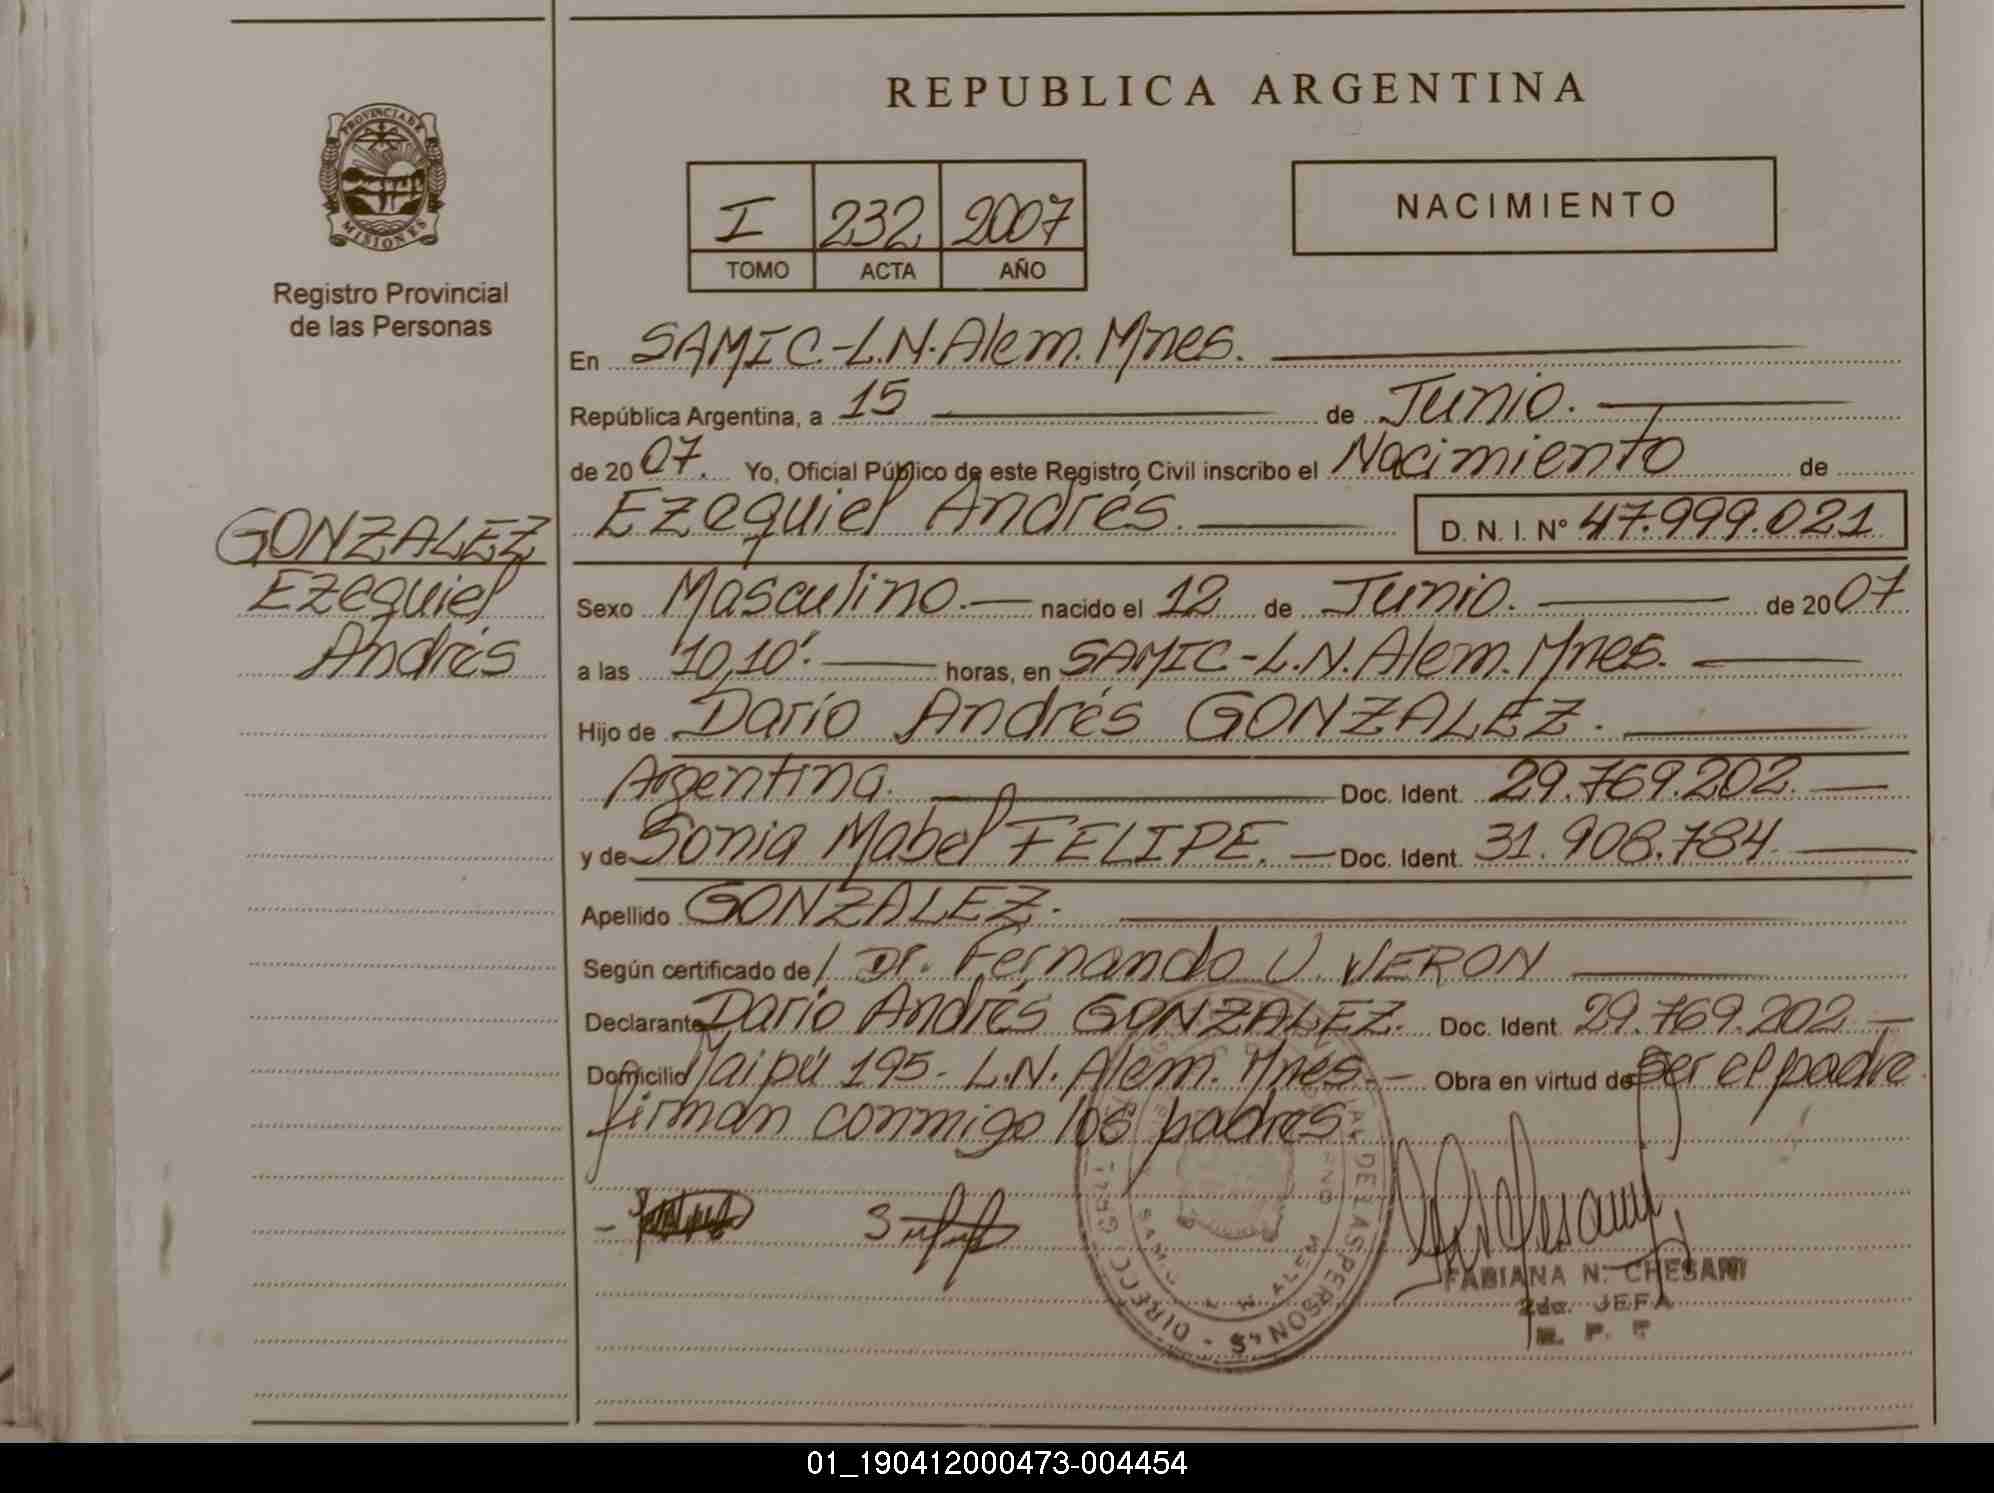 REPUBLICA ARGENTINA
PROVINCIA DE
MISIONES
Registro Provincial
de las Personas
I 232 2007
TOMO ACTA AÑO
NACIMIENTO
En SAMIC.-L.N.Alem.Mnes.
República Argentina, a 15 de Junio.
de 2007. Yo, Oficial Público de este Registro Civil inscribo el Nacimiento de
Ezequiel Andrés. D. N. I. Nº 47.999.021
GONZALEZ
Ezequiel
Andrés
Sexo Masculino. nacido el 12 de Junio. de 2007
a las 10,10'. horas, en SAMIC-L.N.Alem.Mnes.
Hijo de Darío Andrés GONZALEZ.
Argentina. Doc. Ident. 29.769.202.
y de Sonia Mabel FELIPE. Doc. Ident. 31.908.784.
Apellido GONZALEZ.
Según certificado de Dr. Fernando U. VERON
Declarante Darío Andrés GONZALEZ. Doc. Ident. 29.769.202
Domicilio Maipú 195- L.N. Alem. Mnes.- Obra en virtud de Ser el padre
firman conmigo los padres
DE LAS PERSONAS
FABIANA N. CHESANI
2da. JEFA
01_190412000473-004454